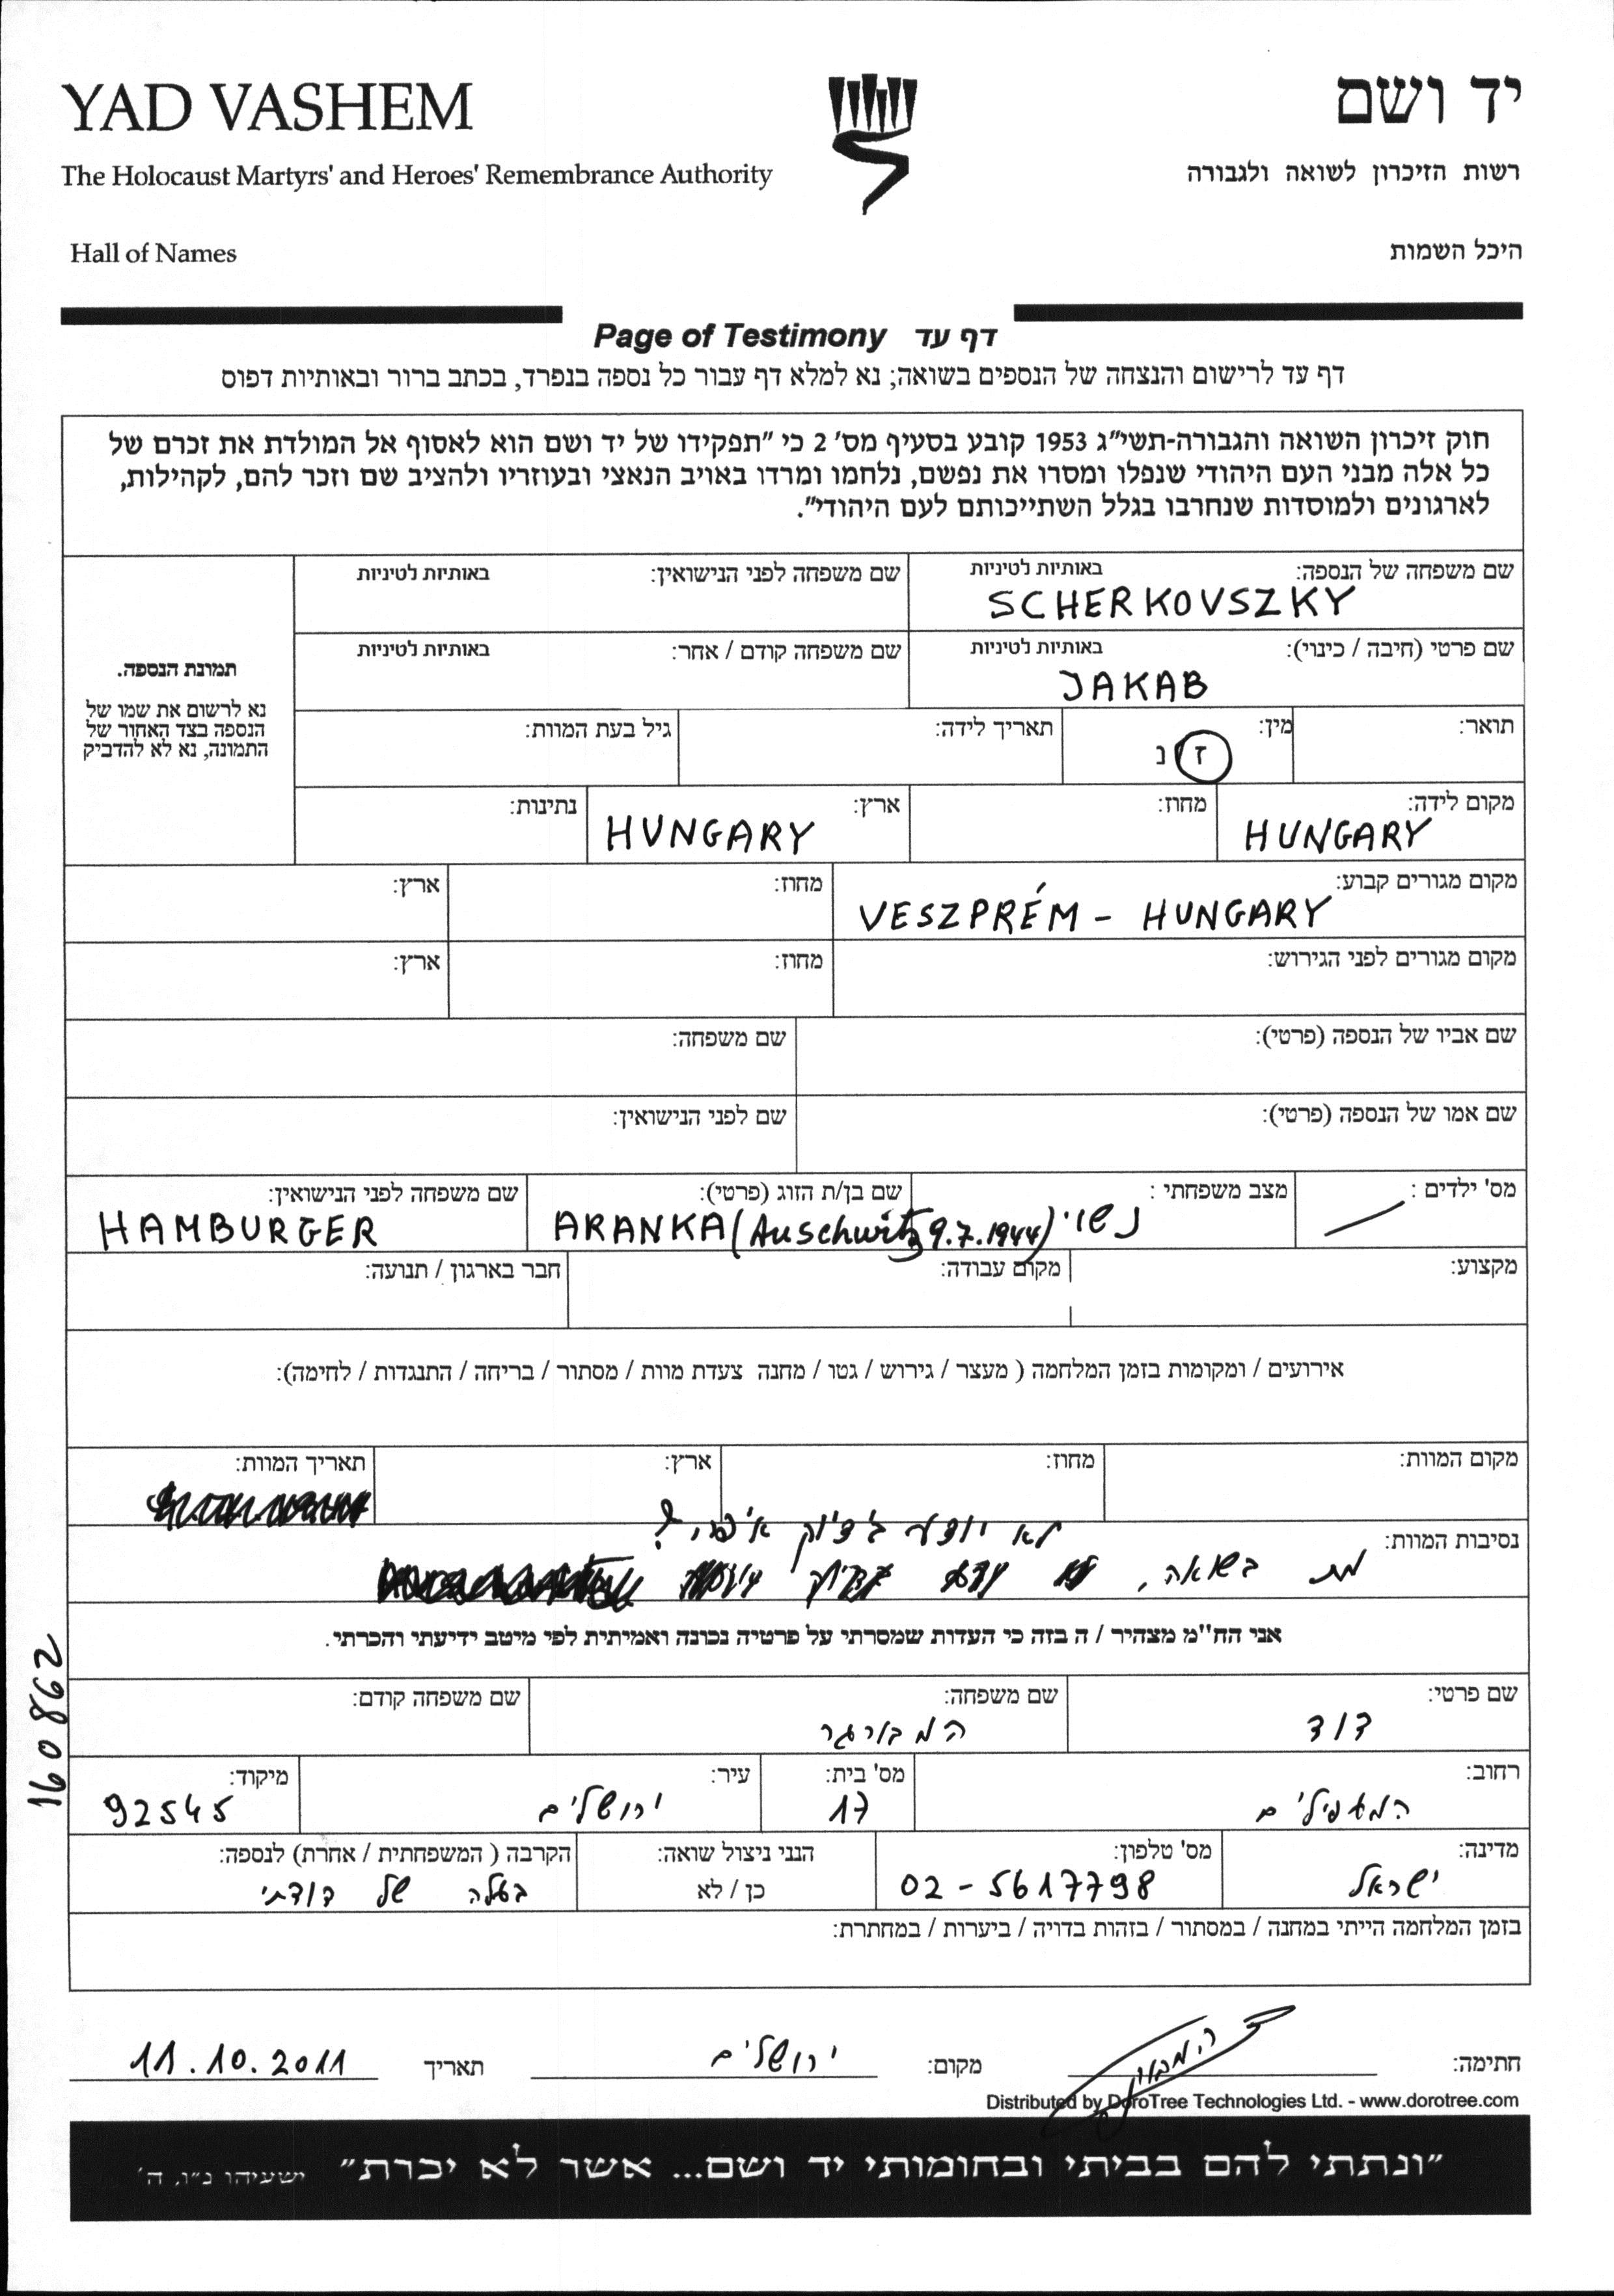 YAD VASHEM
יד ושם
The Holocaust Martyrs' and Heroes' Remembrance Authority
רשות הזיכרון לשואה ולגבורה
Hall of Names
היכל השמות
Page of Testimony דף עד
דף עד לרישום והנצחה של הנספים בשואה; נא למלא דף עבור כל נספה בנפרד, בכתב ברור ובאותיות דפוס
חוק זיכרון השואה והגבורה-תשי"ג 1953 קובע בסעיף מס' 2 כי "תפקידו של יד ושם הוא לאסוף אל המולדת את זכרם של
כל אלה מבני העם היהודי שנפלו ומסרו את נפשם, נלחמו ומרדו באויב הנאצי ובעוזריו ולהציב שם וזכר להם, לקהילות,
לארגונים ולמוסדות שנחרבו בגלל השתייכותם לעם היהודי".
שם משפחה של הנספה: באותיות לטיניות שם משפחה לפני הנישואין: באותיות לטיניות
SCHERKOVSZKY
שם פרטי (חיבה / כינוי): באותיות לטיניות שם משפחה קודם / אחר: באותיות לטיניות
JAKAB
תמונת הנספה.
נא לרשום את שמו של
הנספה בצד האחור של
התמונה, נא לא להדביק
תואר: מין: תאריך לידה: גיל בעת המוות:
ז נ
מקום לידה: מחוז: ארץ: נתינות:
HUNGARY HUNGARY
מקום מגורים קבוע: מחוז: ארץ:
VESZPRÉM - HUNGARY
מקום מגורים לפני הגירוש: מחוז: ארץ:
שם אביו של הנספה (פרטי): שם משפחה:
שם אמו של הנספה (פרטי): שם לפני הנישואין:
מס' ילדים : מצב משפחתי : שם בן/ת הזוג (פרטי): שם משפחה לפני הנישואין:
נשוי ARANKA (Auschwitz 9.7.1944) HAMBURGER
מקצוע: מקום עבודה: חבר בארגון / תנועה:
אירועים / ומקומות בזמן המלחמה ( מעצר / גירוש / גטו / מחנה צעדת מוות / מסתור / בריחה / התנגדות / לחימה):
מקום המוות: מחוז: ארץ: תאריך המוות:
לא יודע בדיוק איפה?
נסיבות המוות:
מת בשואה,
אני הח"מ מצהיר / ה בזה כי העדות שמסרתי על פרטיה נכונה ואמיתית לפי מיטב ידיעתי והכרתי.
שם פרטי: שם משפחה: שם משפחה קודם:
דוד המבורגר
רחוב: מס' בית: עיר: מיקוד:
המעפילים 17 ירושלים 92545
מדינה: מס' טלפון: הנני ניצול שואה: הקרבה ( המשפחתית / אחרת) לנספה:
ישראל 02-5617798 כן / לא בעלה של דודתי
בזמן המלחמה הייתי במחנה / במסתור / בזהות בדויה / ביערות / במחתרת:
160862
חתימה: ד המבורגר מקום: ירושלים תאריך 11.10.2011
Distributed by DoroTree Technologies Ltd. - www.dorotree.com
"ונתתי להם בביתי ובחומותי יד ושם... אשר לא יכרת" ישעיהו נ"ו, ה'